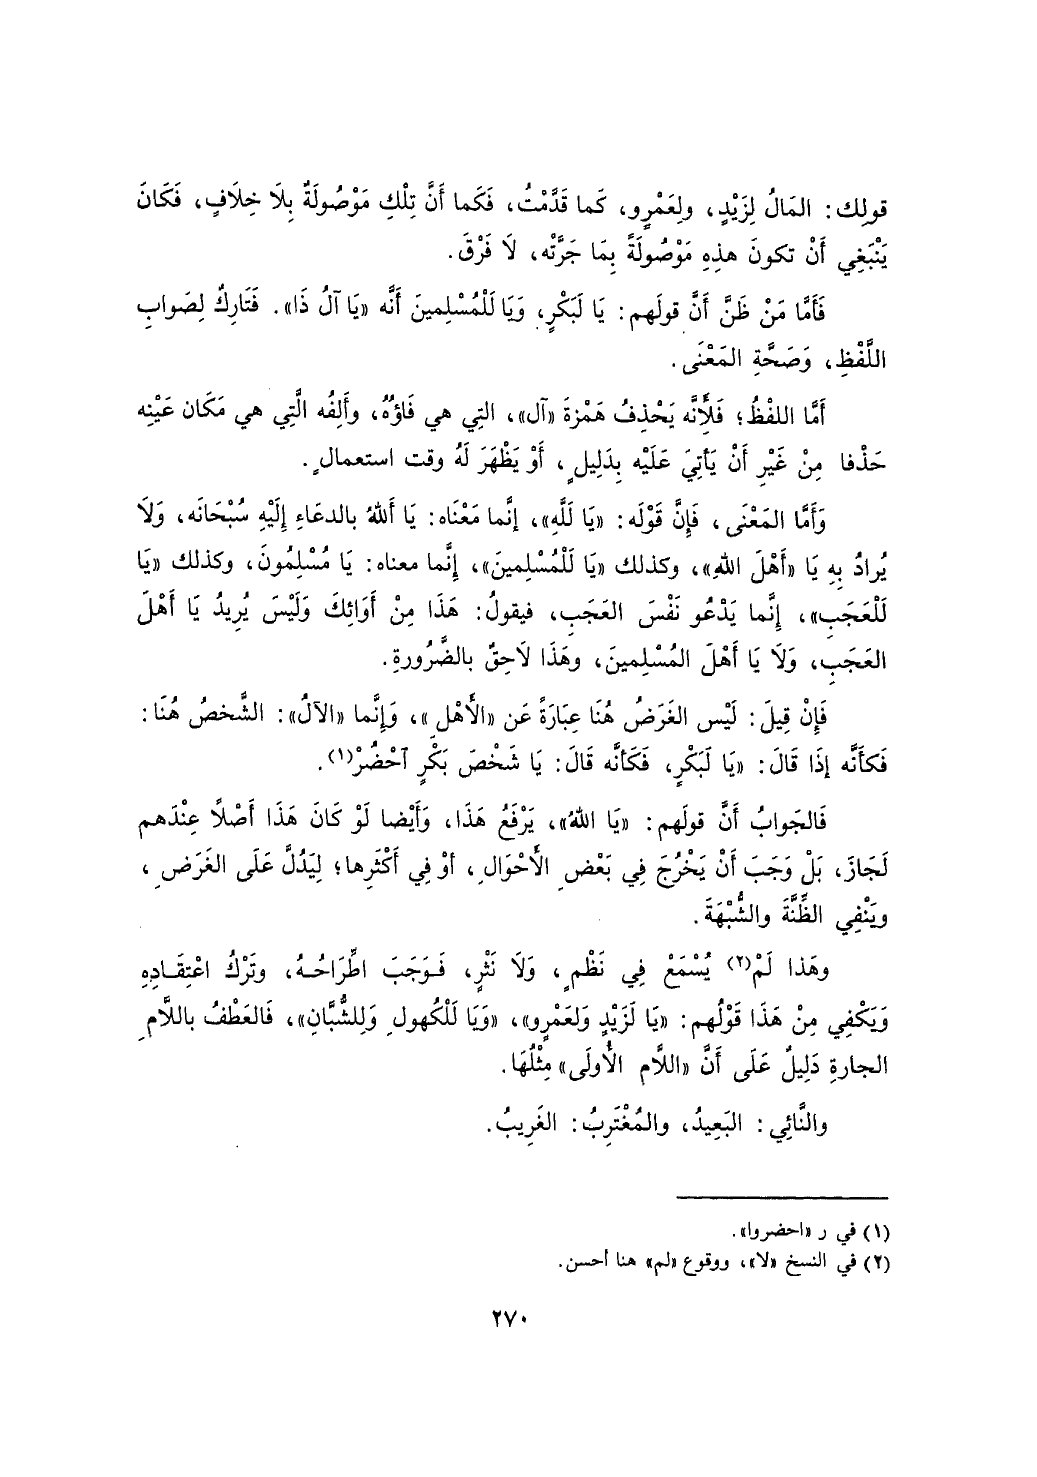 قولِك: المَالُ لِزَيْدٍ، ولِعَمْرٍو، كَما قَدَّمْتُ، فَكَما أَنَّ تِلْكِ مَوْصُولَةٌ بِلَا خِلَافٍ، فَكَانَ
يَنْبَغِي أَنْ تكونَ هذِهِ مَوْصُولَةً بِمَا جَرَّتْه، لَا فَرْقَ.
فَأَمَّا مَنْ ظَنَّ أَنَّ قولَهم: يَا لَبَكْرٍ، وَيَا لَلْمُسْلِمينَ أَنَّه «يَا آلُ ذَا». فَتَارِكٌ لِصَوابِ
اللَّفْظِ، وَصَحَّةِ المَعْنَى.
أَمَّا اللفْظُ؛ فَلأَنَّه يَحْذِفُ هَمْزةَ «آل»، التِي هي فَاؤُهُ، وأَلِفُه الَّتِي هي مَكَان عَيْنِه
حَذْفا مِنْ غَيْرِ أَنْ يَأتِيَ عَلَيْه بِدَلِيلٍ، أَوْ يَظْهَرَ لَهُ وقت استعمالٍ.
وَأَمَّا المَعْنَى، فَإِنَّ قَوْلَه: «يَا لَلَّهِ»، إنَّما مَعْنَاه: يَا أَللهُ بالدعَاءِ إِلَيْهِ سُبْحَانَه، وَلَا
يُرادُ بِهِ يَا «أَهْلَ اللهِ»، وكذلك «يَا لَلْمُسْلِمينَ»، إِنَّما معناه: يَا مُسْلِمُونَ، وكذلك «يَا
لَلْعَجَبِ»، إِنَّما يَدْعُو نَفْسَ العَجَبِ، فيقولُ: هَذَا مِنْ أَوَائِكَ وَلَيْسَ يُرِيدُ يَا أَهْلَ
العَجَبِ، وَلَا يَا أَهْلَ المُسْلِمينَ، وهَذَا لَاحِقٌ بالضَّرُورةِ.
فَإِنْ قِيلَ: لَيْس الغَرَضُ هُنَا عِبَارَةً عَن «الأَهْلِ»، وَإِنَّما «الآلُ»: الشَّخصُ هُنَا:
فَكأَنَّه إِذَا قَالَ: «يَا لَبَكْرٍ، فَكَأنَّه قَالَ: يَا شَخْصَ بَكْرٍ آحْضُرْ(١).
فَالجَوابُ أَنَّ قولَهم: «يَا اللهُ»، يَرْفَعُ هَذَا، وَأَيْضا لَوْ كَانَ هَذَا أَصْلًا عِنْدَهم
لَجَازَ، بَلْ وَجَبَ أَنْ يَخْرُجَ فِي بَعْضِ الأَحْوَالِ، أوْ فِي أَكْثَرِها؛ لِيَدُلَّ عَلَى الغَرَضِ،
ويَنْفِي الظِّنَّةَ والشُّبْهَةَ.
وهَذا لَمْ(٢) يُسْمَعْ فِي نَظْمٍ، وَلَا نَثْرٍ، فَوَجَبَ اطِّرَاحُهُ، وتَرْكُ اعْتِقَادِهِ
وَيَكْفِي مِنْ هَذَا قَوْلُهم: «يَا لَزَيْدٍ وَلعَمْرٍو»، «وَيَا لَلْكُهولِ وَلِلشُّبَّانِ»، فَالعَطْفُ باللَّامِ
الجارةِ دَلِيلٌ عَلَى أَنَّ «اللَّام الأُولَى» مِثْلُهَا.
والنَّائِي: البَعِيدُ، والمُغْتَرِبُ: الغَرِيبُ.
(١) في ر «احضروا».
(٢) في النسخ «لا»، ووقوع «لم» هنا أحسن.
٢٧٠